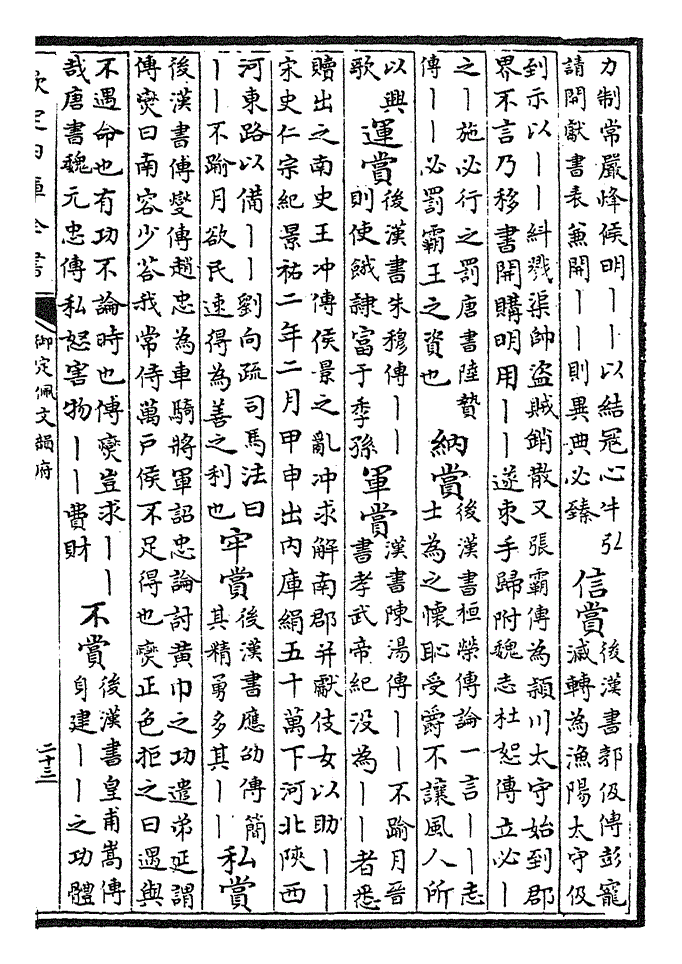 力制常嚴烽候明丨丨以結冦心牛弘
請開獻書表兼開丨丨則異典必臻
信賞
後漢書郭伋傳彭寵
滅轉為漁陽太守伋
到示以丨丨糾戮渠帥盜賊銷散又張霸傳為潁川太守始到郡
界不言乃移書開購明用丨丨遂束手歸附魏志杜恕傳立必丨
之丨施必行之罰唐書陸贄
傳丨丨必罰霸王之資也
納賞
後漢書桓榮傳論一言丨丨志
士為之懷恥受爵不讓風人所
以興
歌
運賞
後漢書朱穆傳丨丨
則使餓隸富于季孫
軍賞
漢書陳湯傳丨丨不踰月晉
書孝武帝紀没為丨丨者悉
贖出之南史王冲傳侯景之亂冲求解南郡并獻伎女以助丨丨
宋史仁宗紀景祐二年二月甲申出内庫絹五十萬下河北陝西
河東路以備丨丨劉向疏司馬法曰
丨丨不踰月欲民速得為善之利也
牢賞
後漢書應劭傳簡
其精勇多其丨丨
私賞
後漢書傅燮傳趙忠為車騎將軍詔忠論討黄巾之功遣弟延謂
傅燮曰南容少答我常侍萬戶侯不足得也燮正色拒之曰遇與
不遇命也有功不論時也傅燮豈求丨丨
哉唐書魏元忠傳私恕害物丨丨費財
不賞
後漢書皇甫嵩傳
身建丨丨之功體
欽定四庫全書
御定佩文韻府
二十三